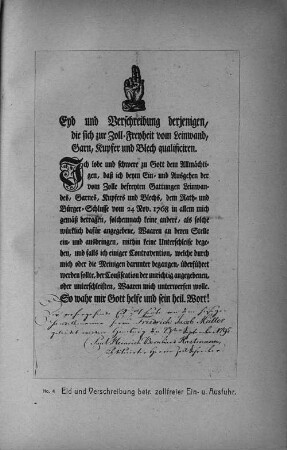 Eyd und Verschreibung derjenigen,
die sich zur Zoll-Freyheit vom Leinwand,
Garn, Kupfer und Blech qualificiren.
Ich lobe und schwere zu Gott dem Allmächti-
gen, daß ich beym Ein- und Ausgehen der
vom Zolle befreyten Gattungen Leinwan-
des, Garnes, Kupfers und Blechs, dem Rath- und
Bürger-Schlusse vom 24 Nov. 1763 in allem mich
gemäß betragen, solchemnach keine andere, als solche
würcklich dafür angegebene, Waaren an deren Stelle
ein- und ausbringen, mithin keine Unterschleife bege-
hen, und falls ich einiger Contravention, welche durch
mich oder die Meinigen darunter begangen, überführet
werden sollte, der Confiscation der unrichtig angegebenen,
oder unterschleiften, Waaren mich unterwerfen wolle.
So wahr mir Gott helfe und sein heil. Wort!
Friedrich Jacob Müller
No. 4 Eid und Verschreibung betr. zollfreier Ein- u. Ausfuhr.